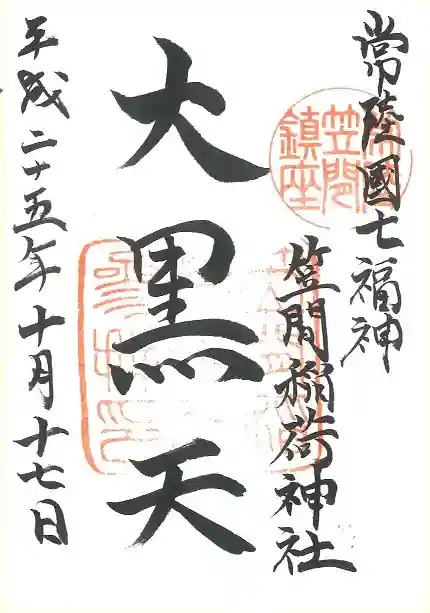 常陸國七福神
笠間稲荷神社
大黒天
平成二十五年十月十七日
笠間
鎮座